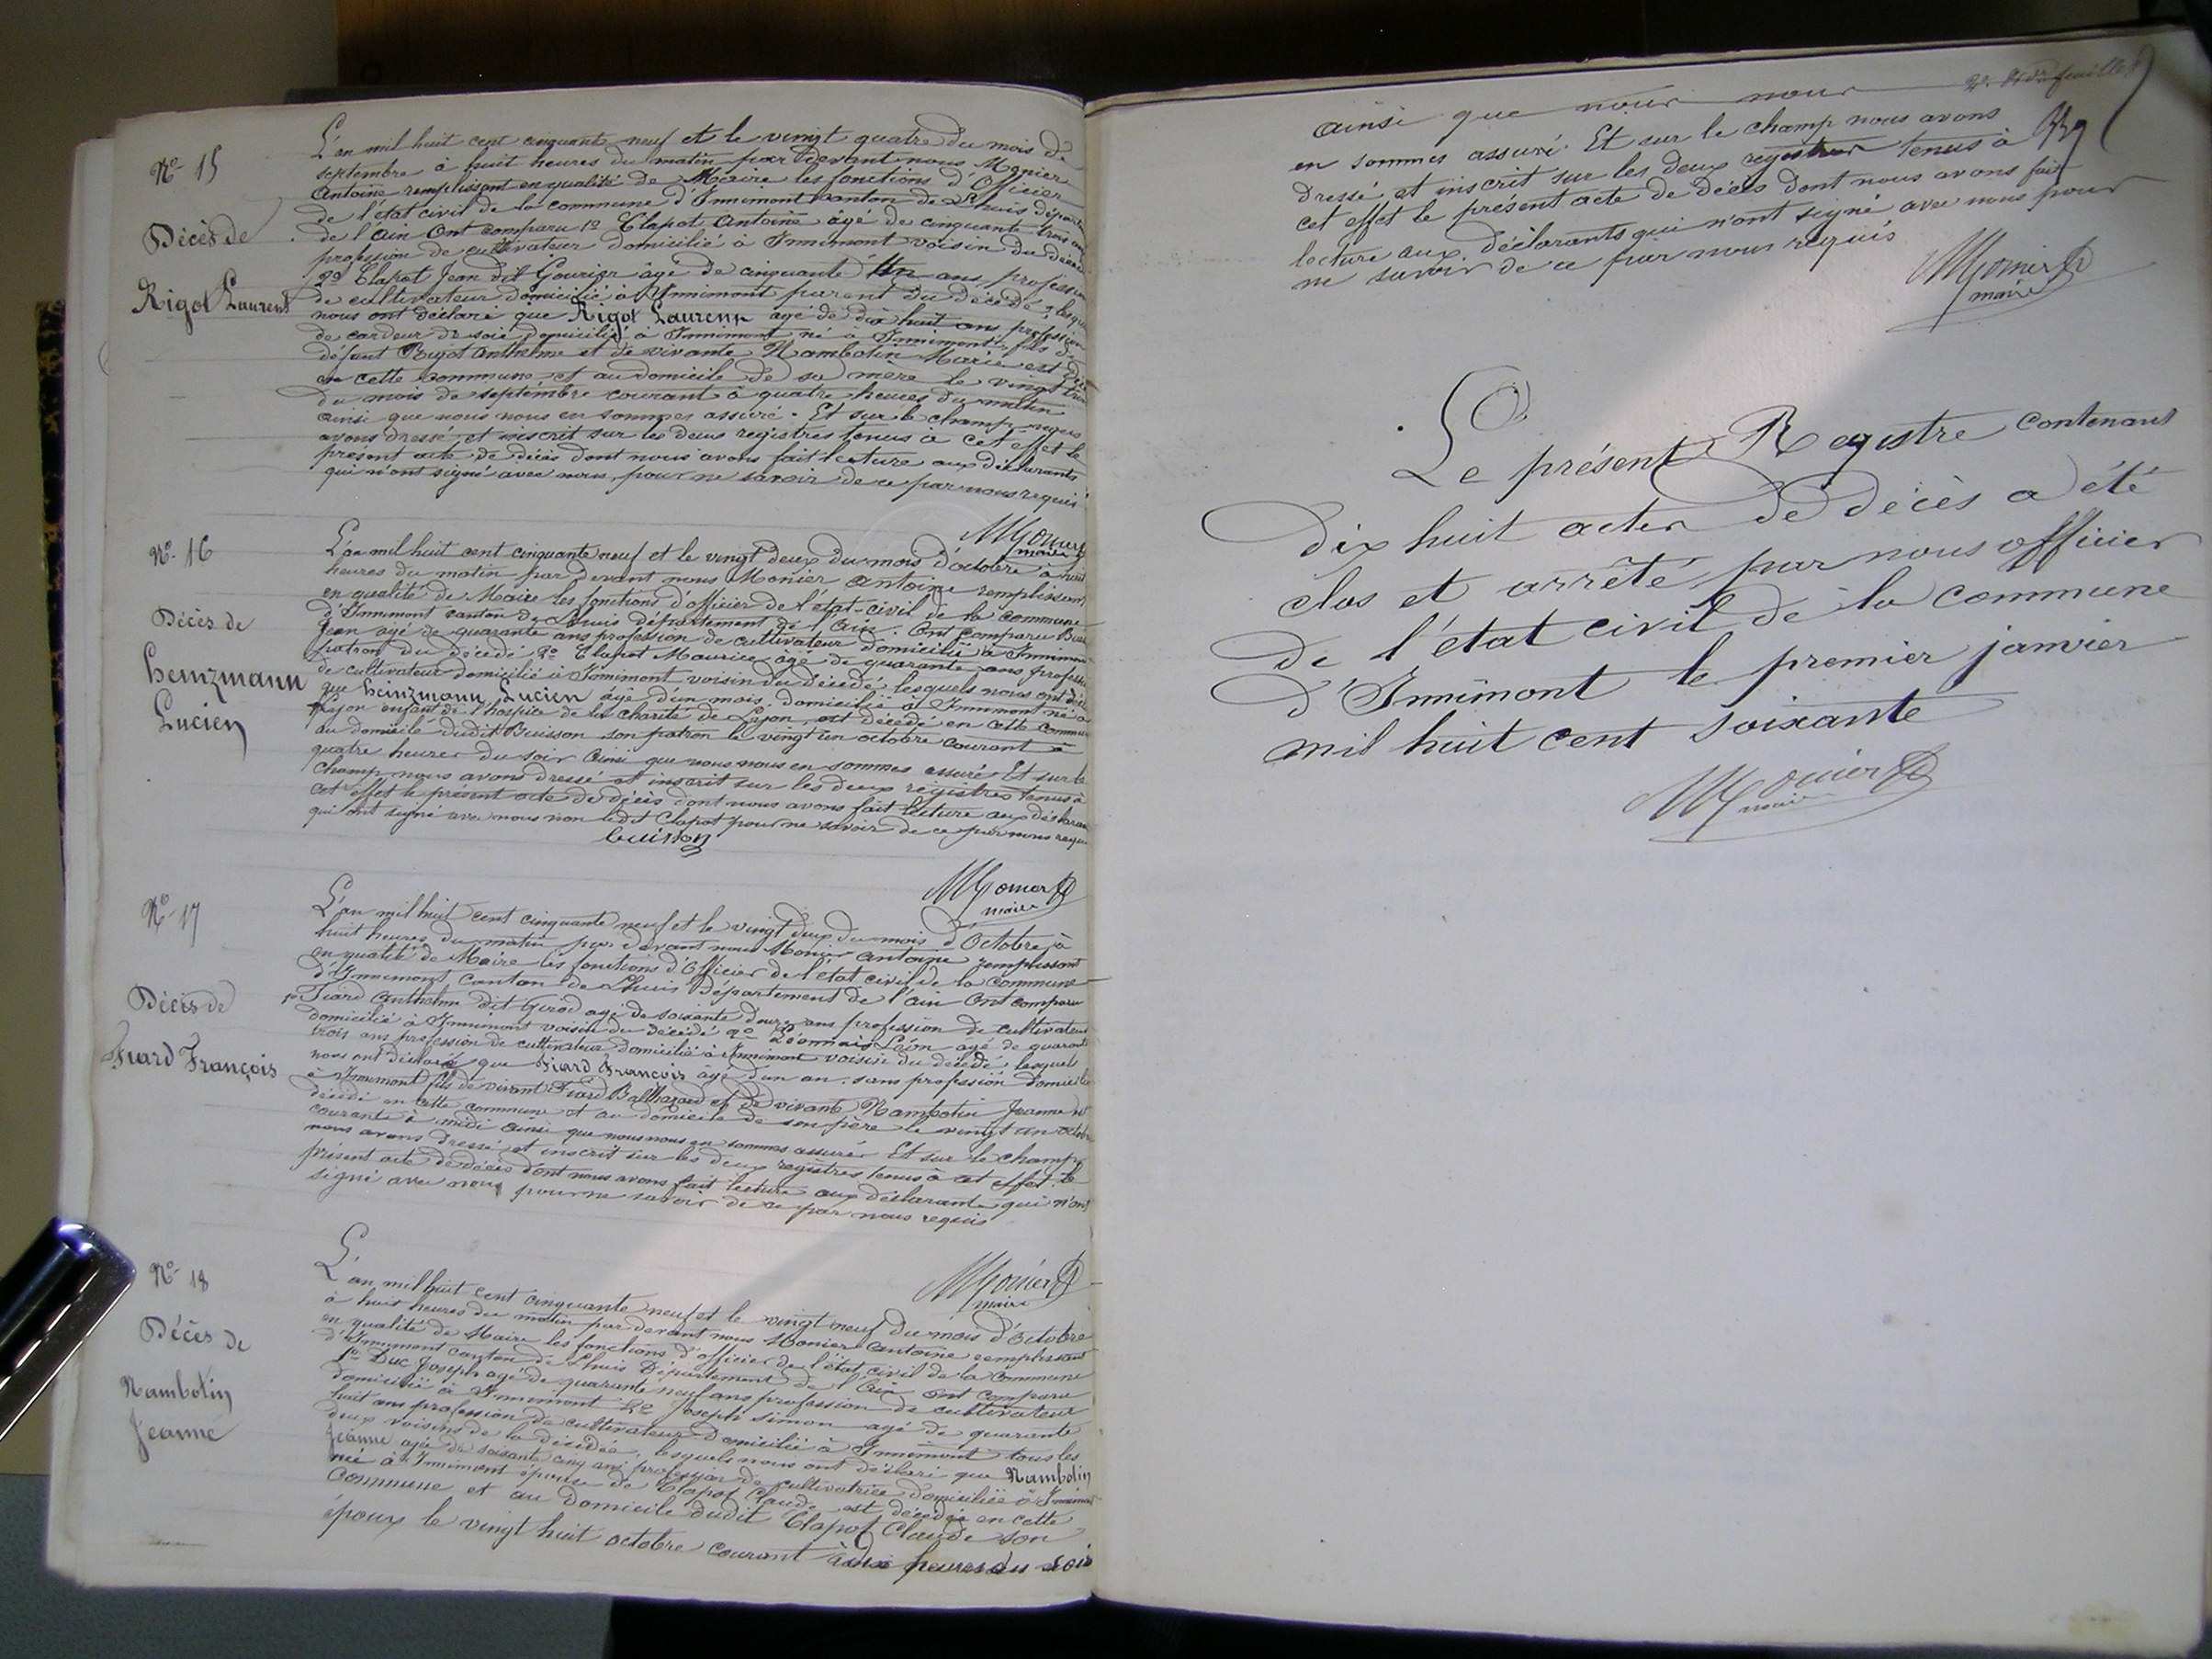 Nº 15
Décès de
Rigot Laurent
L'an mil huit cent cinquante neuf et le vingt quatre du mois de
septembre à huit heures du matin par devant nous Monier
Antoine remplissant en qualité de Maire les fonctions d'Officier
de l'état civil de la commune d'Innimont canton de Lhuis départe
de l'Ain Ont comparu 1º Clapot Antoine âgé de cinquante trois ans
profession de cultivateur domicilié à Innimont voisin du décédé
2º Clapot Jean dit Gourier âgé de cinquante Un ans profession
de cultivateur domicilié à Innimont parent du décédé, lesqu
nous ont déclaré que Rigot Laurent agé de dix huit ans profession
de cardeur de soie domicilié à Innimont né à Innimont fils de
défunt Rigot Anthelme et de vivante Nambotin Marie est déc
en cette commune et au domicile de sa mère le vingt trois
du mois de septembre courant à quatre heures du matin
ainsi que nous nous en sommes assuré. Et sur le champ nous
avons dressé et inscrit sur les deux registres tenus à cet effet le
présent acte de décès dont nous avons fait lecture aux déclarants
qui n'ont signé avec nous, pour ne savoir de ce par nous requis
Monier
maire
Nº 16
Décès de
heinzmann
Lucien
L'an mil huit cent cinquante neuf et le vingt deux du mois d'octobre à huit
heures du matin par devant nous Monier Antoine remplissant
en qualité de Maire les fonctions d'officier de l'état-civil de la commune
d'Innimont canton de Lhuis département de l'Ain. Ont comparu Buis
Jean agé de quarante ans profession de cultivateur domicilié à Innimon
patron du décédé 2º Clapot Maurice âgé de quarante ans profession
de cultivateur domicilié à Innimont voisin du décédé, lesquels nous ont déc
que heinzmann Lucien âgé d'un mois domicilié à Innimont né à
Lyon enfant de l'hospice de la charité de Lyon, est décédé en cette commun
au domicile dudit Buisson son patron le vingt un octobre courant à
quatre heures du soir Ainsi que nous nous en sommes assuré Et sur le
champ nous avons dressé et inscrit sur les deux registres tenus à
cet effet le présent acte de décès dont nous avons fait lecture aux déclaran
qui ont signé avec nous non ledit Clapot pour ne savoir de ce par nous requ
buisson
Monier
maire
Nº 17
Décès de
Fiard François
L'an mil huit cent cinquante neuf et le vingt deux du mois d'Octobre à
huit heures du matin par devant nous Monier Antoine remplissant
en qualité de Maire les fonctions d'Officier de l'état civil de la Commune
d'Innimont Canton de Lhuis Département de l'Ain Ont comparu
1º Fiard Anthelme dit Girod agé de soixante douze ans profession de cultivateur
domicilié à Innimont voisin du décédé 2º Léonnais Léon âgé de quarante
trois ans profession de cultivateur domicilié à Innimont voisin du décédé lesquels
nous ont déclaré que Fiard François âgé d'un an, sans profession domicilié
à Innimont fils de vivant Fiard Balthazard et de vivante Nambotin Jeanne est
décédé en cette commune et au domicile de son père le vingt un octobre
courante à midi ainsi que nous nous en sommes assuré Et sur le champ
nous avons dressé et inscrit sur les deux registres tenus à cet effet le
présent acte de décès dont nous avons fait lecture aux déclarants qui n'ont
signé avec nous pour ne savoir de ce par nous requis
Monier
maire
Nº 18
Décès de
Nambotin
Jeanne
L'an mil huit cent cinquante neuf et le vingt neuf du mois d'Octobre
à huit heures du matin par devant nous Monier Antoine remplissant
en qualité de Maire les fonctions d'officier de l'état civil de la Commune
d'Innimont canton de Lhuis Département de l'Ain Ont comparu
1º Duc Joseph agé de quarante neuf ans profession de cultivateur
domicilié à Innimont 2º Joseph Simon agé de quarante
huit ans profession de cultivateur domicilié à Innimont tous les
deux voisins de la décédée, lesquels nous ont déclaré que Nambotin
Jeanne agée de soixante cinq ans profession de cultivatrice domiciliée à Innimont
née à Innimont épouse de Clapot Claude est décédée en cette
Commune et au domicile dudit Clapot Claude son
époux le vingt huit octobre courant à dix heures du soir
ainsi que nous nous
en sommes assuré. Et sur le champ nous avons
dressé et inscrit sur les deux registres tenus à
cet effet le présent acte de décès dont nous avons fait
lecture aux déclarants qui n'ont signé avec nous pour
ne savoir de ce par nous requis
Monier
maire
Le présent Registre contenant
dix huit actes de décès a été
clos et arrêté par nous officier
de l'état civil de la commune
d'Innimont le premier janvier
mil huit cent soixante
Monier
maire